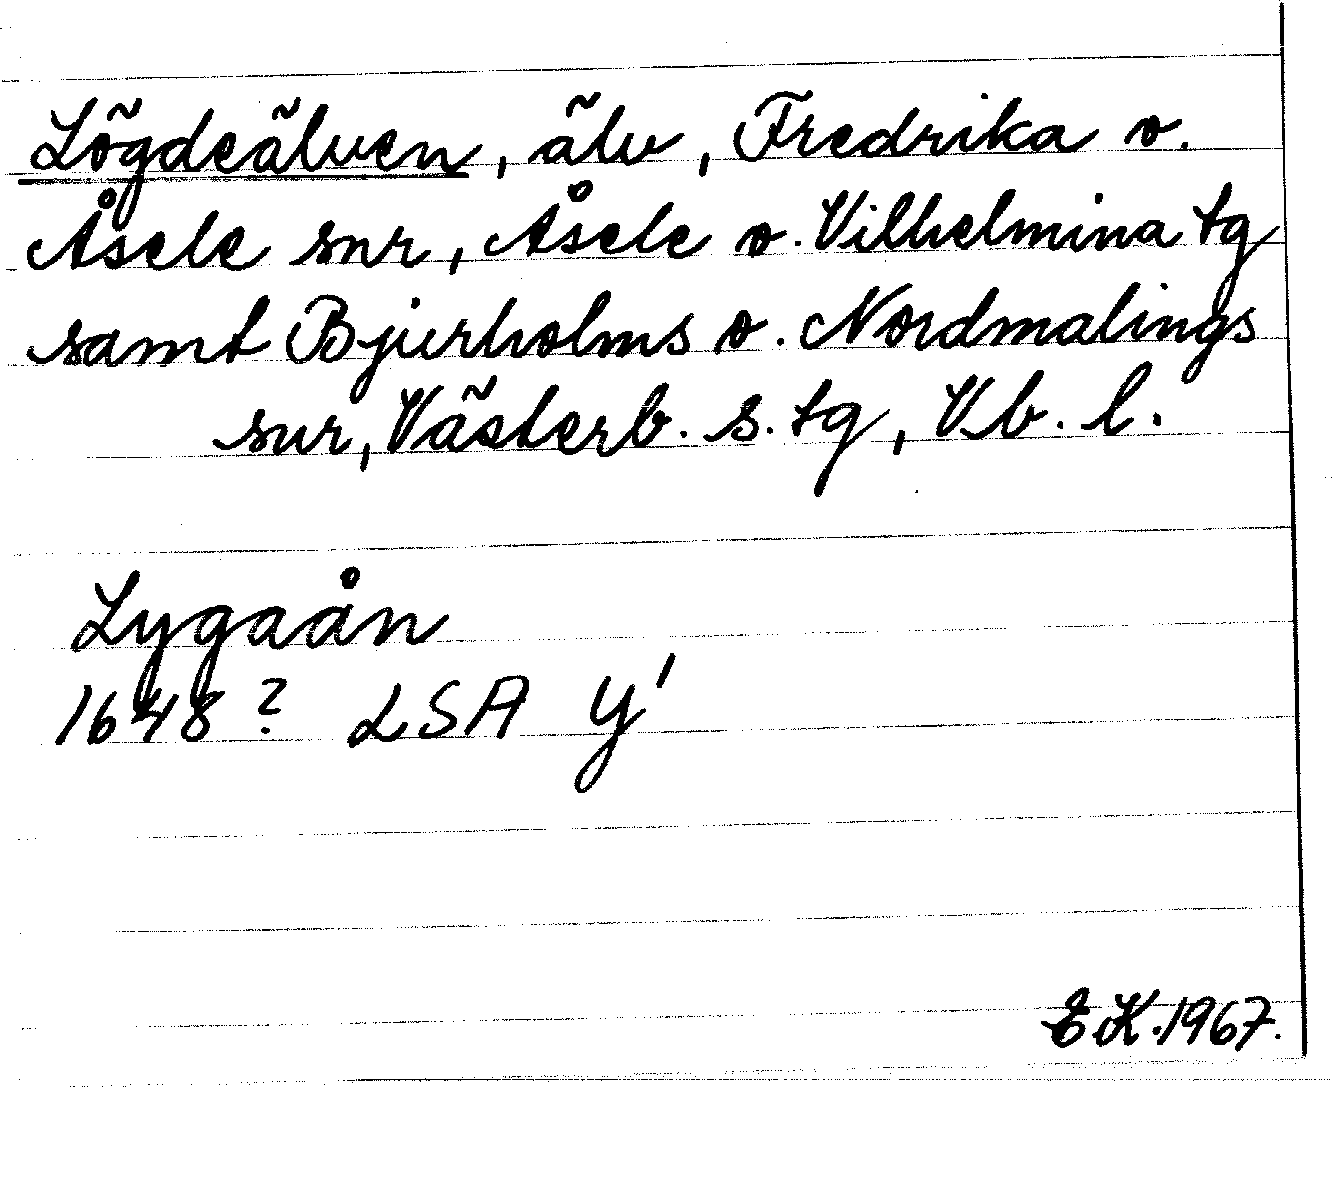 Lögdeälven, älv, Fredrika o.
Åsele snr, Åsele o. Vilhelmina tg
samt Bjurholms o. Nordmalings
snr, Västerb. s. tg, Vb. l.
Lygaån
1648? LSA Y'
E.K. 1967.